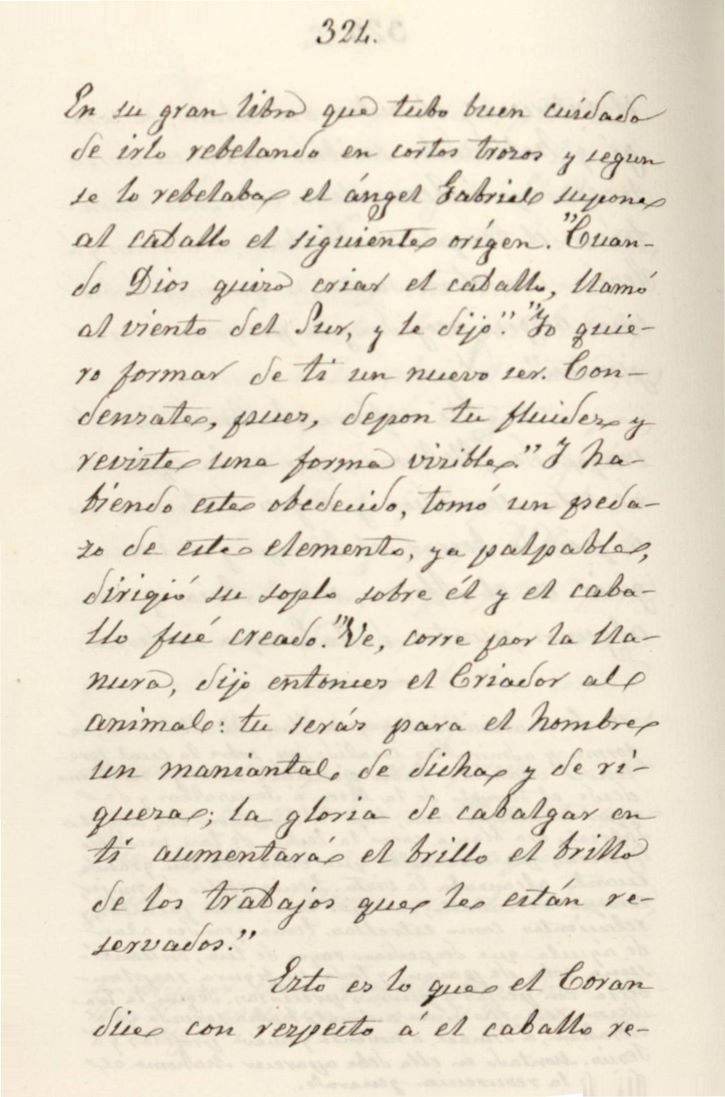 324.
En su gran libro que tubo buen cuidado
de irlo rebelando en cortos trozos y segun
se lo rebelaba el ángel Gabriel supone
al caballo el siguiente orígen. "Cuan-
do Dios quizo criar el caballo, llamó
al viento del Sur, y le dijo". "Yo quie-
ro formar de ti un nuevo ser. Con-
densate, pues, depon tu fluidez y
reviste una forma visible." Y ha-
biendo este obedecido, tomó un peda-
zo de este elemento, ya palpable,
dirigió su soplo sobre él y el caba-
llo fué creado. "Ve, corre por la lla-
nura, dijo entonces el Criador al
animal: tu serás para el hombre
un maniantal de dicha y de ri-
queza; la gloria de cabalgar en
ti aumentará el brillo el brillo
de los trabajos que le están re-
servados."
Esto es lo que el Coran
dice con respecto á el caballo re-